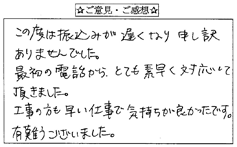 ☆ご意見・ご感想☆
この度は振込みが遅くなり申し訳
ありませんでした。
最初の電話から、とても素早く対応して
頂きました。
工事の方も早い仕事で気持ちが良かったです。
有難うございました。